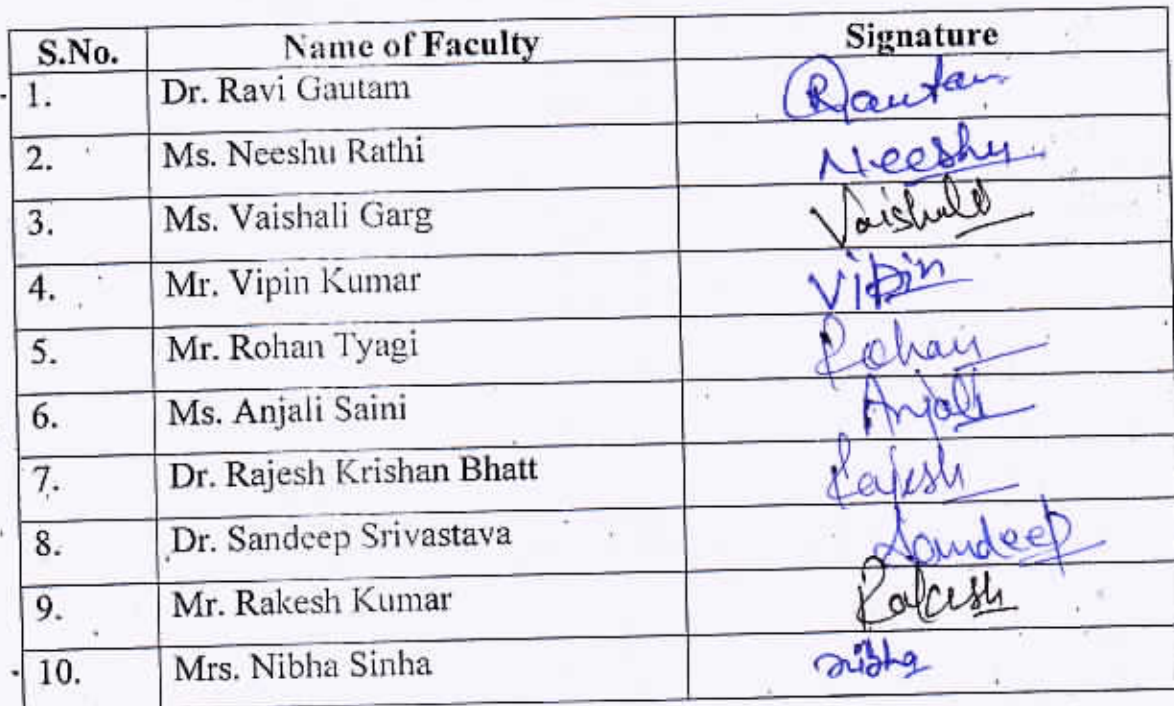 S.No. Name of Faculty Signature
1. Dr. Ravi Gautam RGautam
2. Ms. Neeshu Rathi Neeshu
3. Ms. Vaishali Garg Vaishali
4. Mr. Vipin Kumar Vipin
5. Mr. Rohan Tyagi Rohan
6. Ms. Anjali Saini Anjali
7. Dr. Rajesh Krishan Bhatt Rajesh
8. Dr. Sandeep Srivastava Sandeep
9. Mr. Rakesh Kumar Rakesh
10. Mrs. Nibha Sinha Nibha